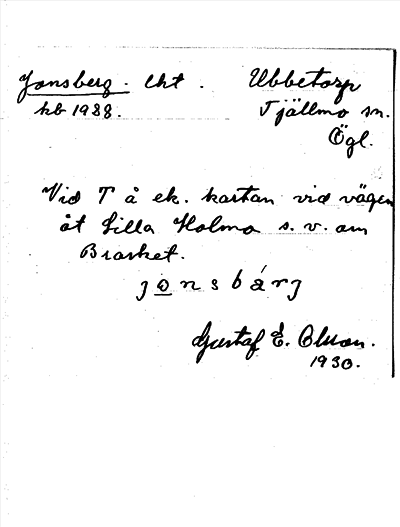 Jonsberg. lht. Ubbetorp
hb 1988. Tjällmo sn.
Ögl.
Vid T å ek. kartan vid vägen
åt Lilla Holmo s.v. om
jonsbárj
Gustaf E. Olsson.
1930.